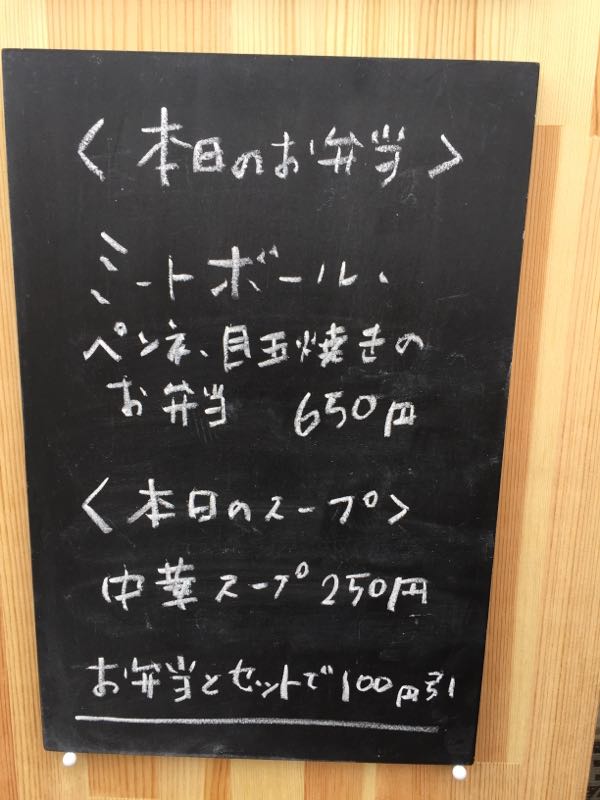 〈本日のお弁当〉
ミートボール、
ペンネ、目玉焼きの
お弁当 650円
〈本日のスープ〉
中華スープ 250円
お弁当とセットで100円引